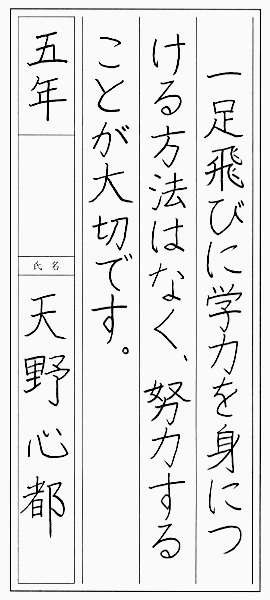 一足飛びに学力を身につ
ける方法はなく、努力する
ことが大切です。
五年
氏名
天野心都